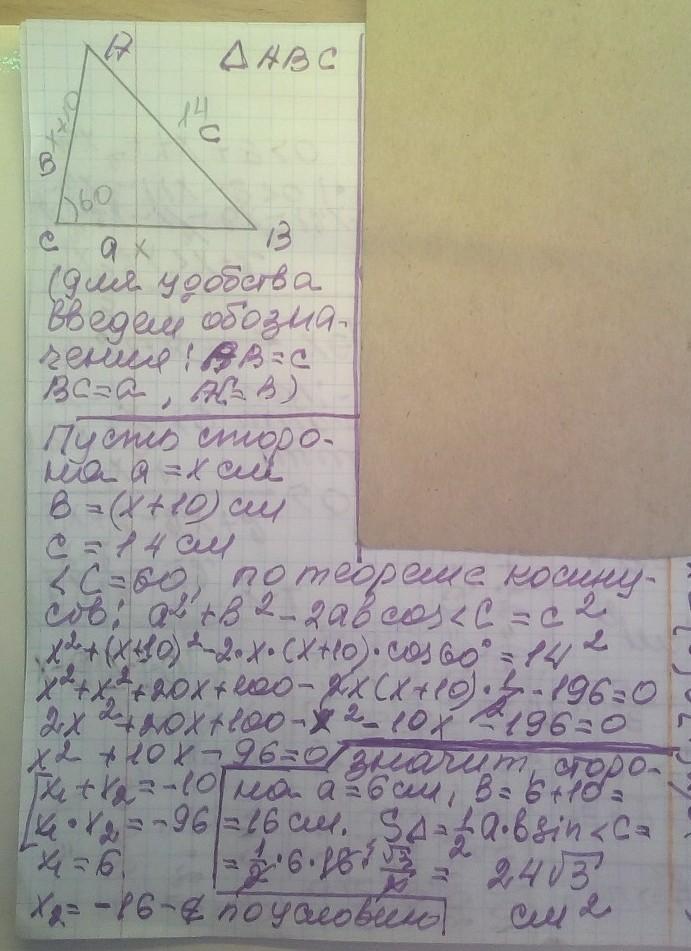 ΔABC
A
x+10
14
C
B
60
C a x B
(для удобства
введем обозна-
чения: AB=c
BC=a, AC=B)
Пусть сторо-
на a = x см
B = (x+10) см
C = 14 см
<C=60, по теореме косину-
сов: a²+B²-2aBcos<C = c²
x²+(x+10)²-2·x·(x+10)·cos60°=14²
x²+x²+20x+100-2x(x+10)·1/2-196=0
2x²+20x+100-x²-10x-196=0
x²+10x-96=0
[x₁+x₂=-10
x₁·x₂=-96
x₁=6
x₂=-16-¢ по условию
значит, сторо-
на a=6см, B=6+10=
=16см. SΔ=1/2 a·B sin<C=
=1/2·6·16·√3/2= 24√3
см²